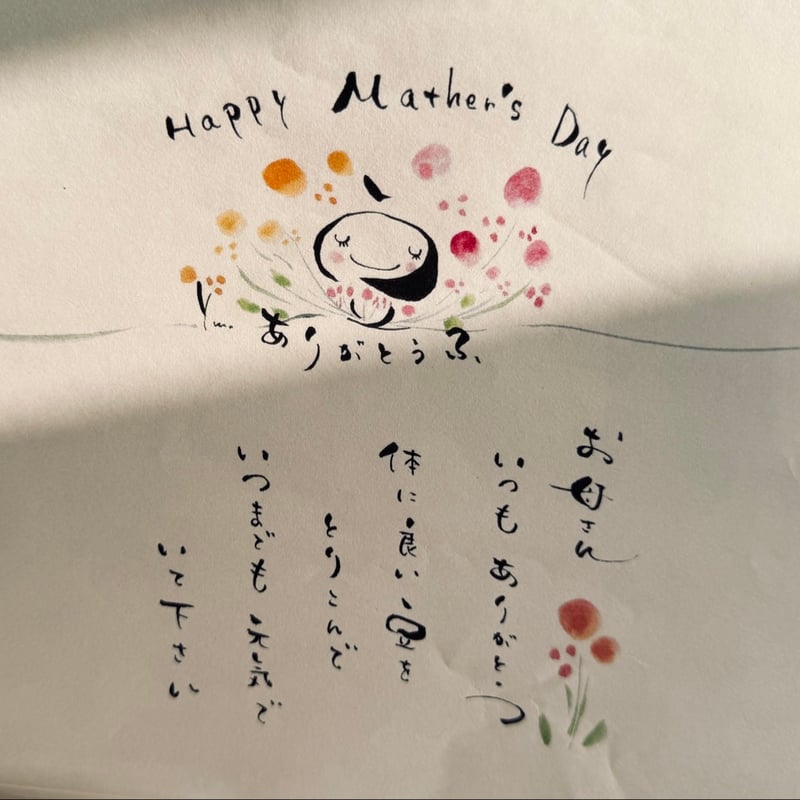 Happy Mather's Day
ありがとうふ、
お母さん
いつもありがとう
体に良い豆を
とりこんで
いつまでも元気で
いて下さい